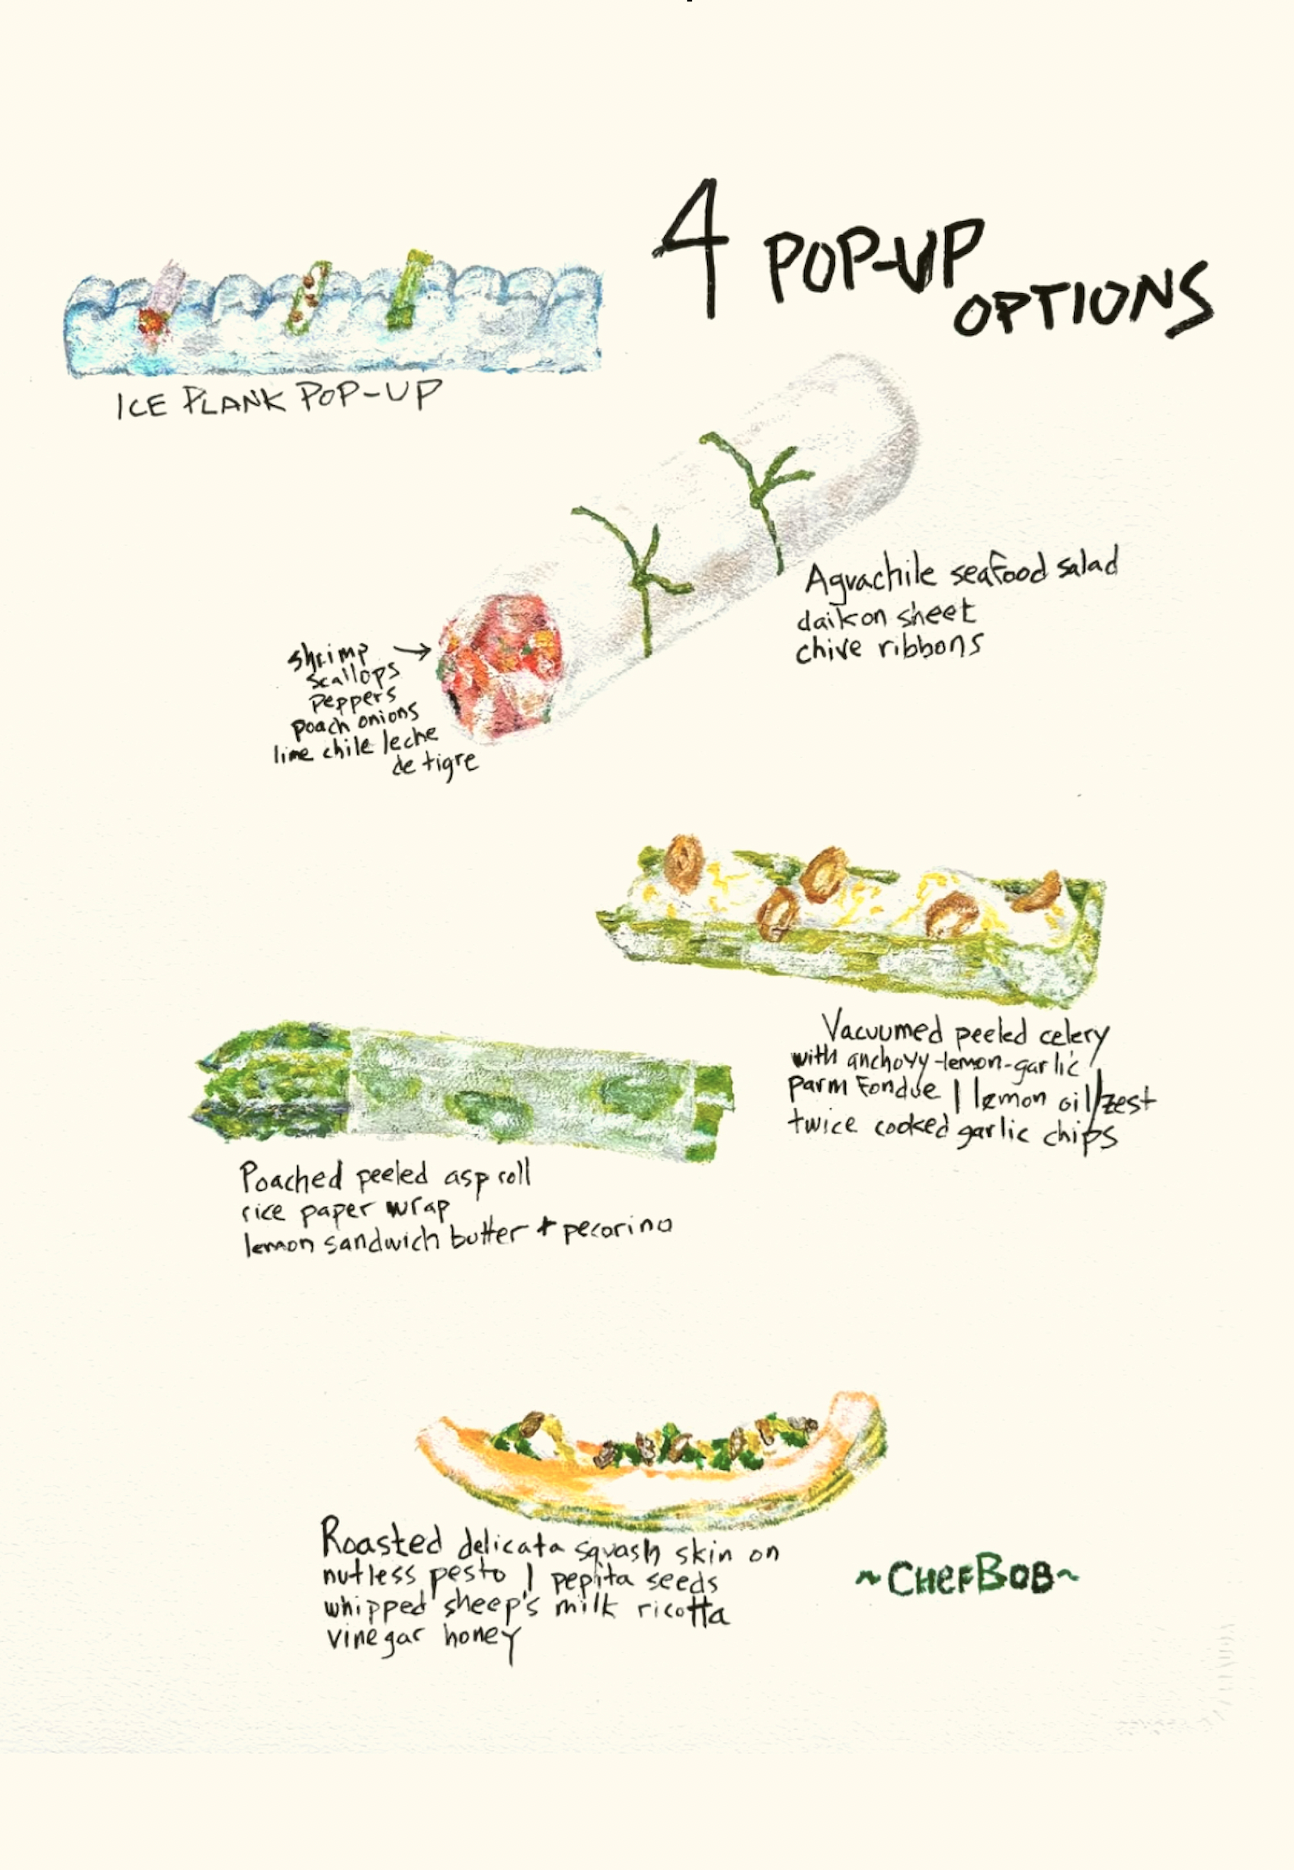 4 POP-UP
OPTIONS
ICE PLANK POP-UP
Aguachile seafood salad
daikon sheet
chive ribbons
shrimp
scallops
peppers
poach onions
lime chile leche
de tigre
Vacuumed peeled celery
with anchovy-lemon-garlic
parm fondue | lemon oil/zest
twice cooked garlic chips
Poached peeled asp roll
rice paper wrap
lemon sandwich butter + pecorino
Roasted delicata squash skin on
nutless pesto | pepita seeds
whipped sheep's milk ricotta
vinegar honey
~CHEFBOB~